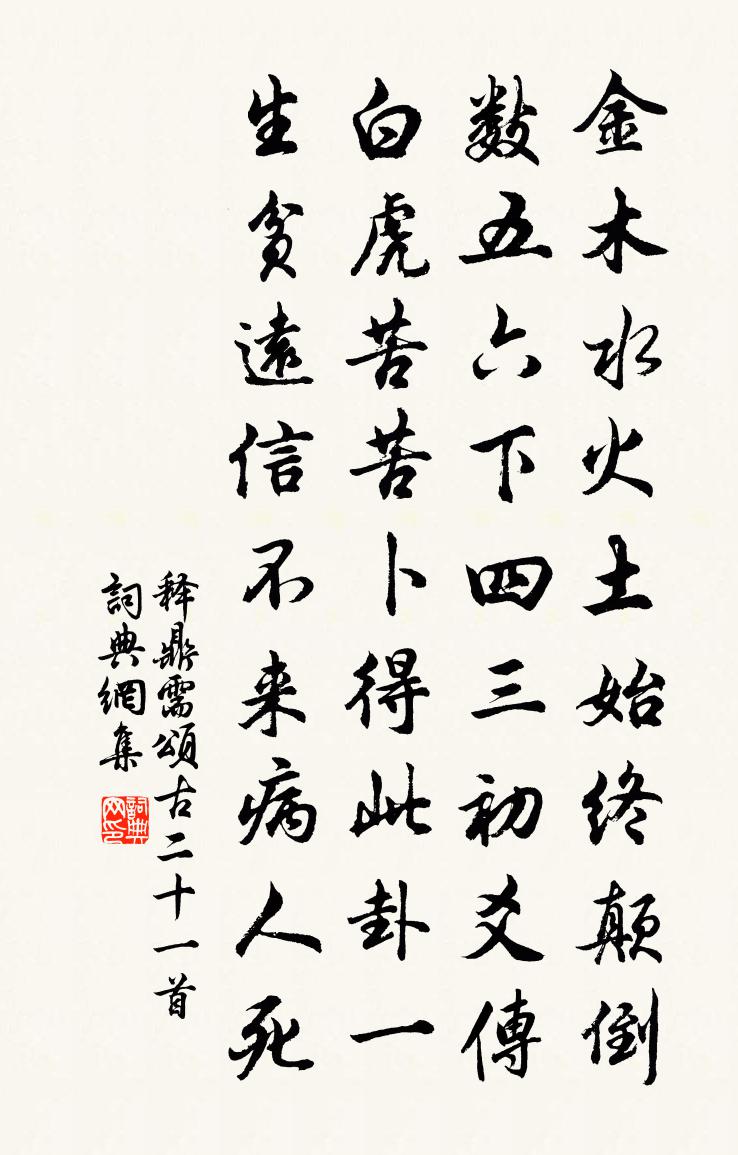 金木水火土始终颠倒
数五六下四三初爻傳
白虎苦苦卜得此卦一
生贫遠信不来病人死
释鼎需頌古二十一首
詞典網集
詞典网印